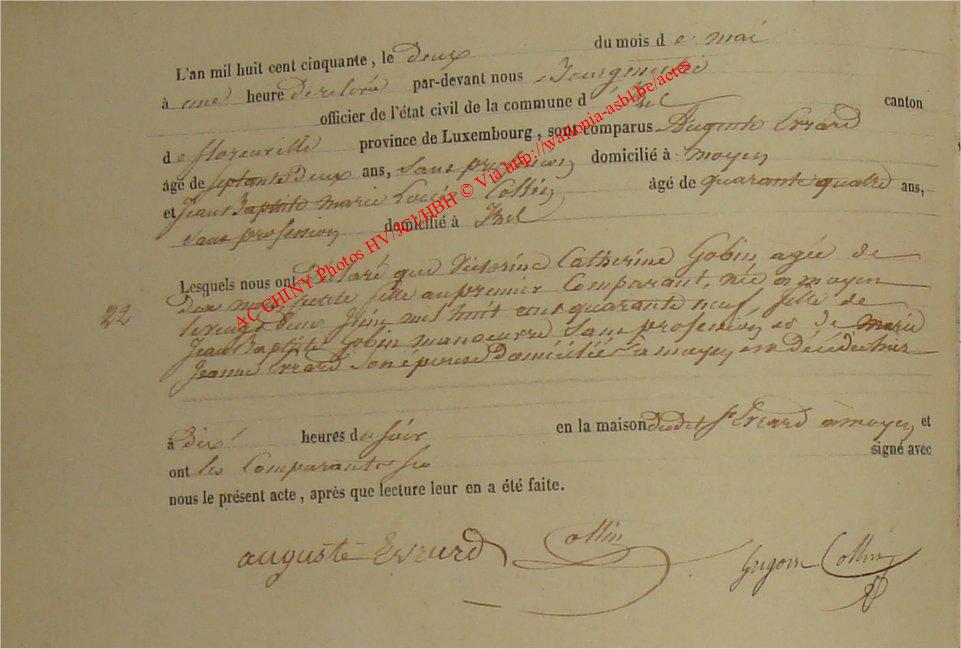 L'an mil huit cent cinquante, le deux du mois d e mai
à une heure de relevé par-devant nous Bourgmestre
officier de l'état civil de la commune d' Izel canton
d e florenville province de Luxembourg, sont comparus Auguste Errard
âgé de septante deux ans, sans profession domicilié à moyen
et Jean Baptiste marie Collin âgé de quarante quatre ans,
sans profession domicilié à Izel
Lesquels nous ont déclaré que Victorine Catherine Gobin agée de
dix mois, petite fille au premier Comparant, née a moyen
le vingt deux Juin mil huit cent quarante neuf, fille de
22
Jean Baptiste Gobin manoeuvre sans profession et de marie
Jeanne Errard son épouse domiciliés à moyen est décédée hier
à dix heures du soir en la maison dudit Sr Errard a moyen et
ont les Comparants signé avec
nous le présent acte, après que lecture leur en a été faite.
auguste Errard Collin
Collin
AC CHINY Photos HV/JCI/HBH © Via http://wallonia-asbl.be/actes